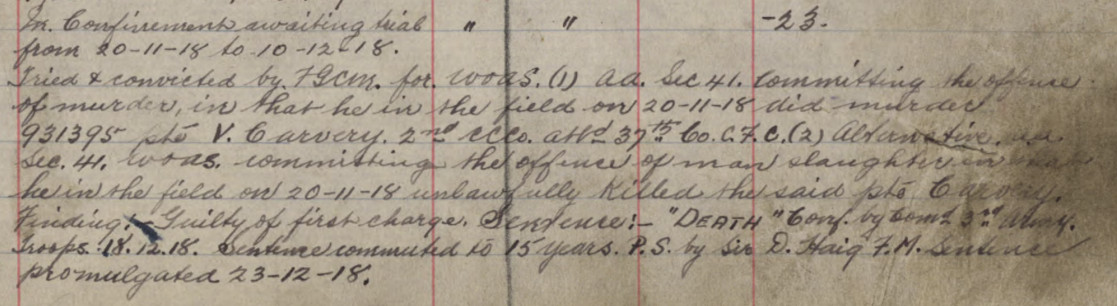 In Confinement awaiting trial " " -23.
from 20-11-18 to 10-12-18.
Tried & convicted by FGCM. for WOAS. (1) AA. Sec 41. Committing the offense
of murder, in that he in the field on 20-11-18 did murder
931395 pte V. Carvery. 2nd CCCo. attd 37th Co. C.F.C. (2) Alternative. A.A.
Sec. 41. WOAS. committing the offence of man slaughter in
he in the field on 20-11-18 unlawfully killed the said pte Carvery.
Finding:- Guilty of first charge. Sentence:- "DEATH" Conf. by Comd 3rd Army.
Troops. 18.12.18. Sentence commuted to 15 years. P.S. by Sir D. Haig F.M. Sentence
promulgated 23-12-18.